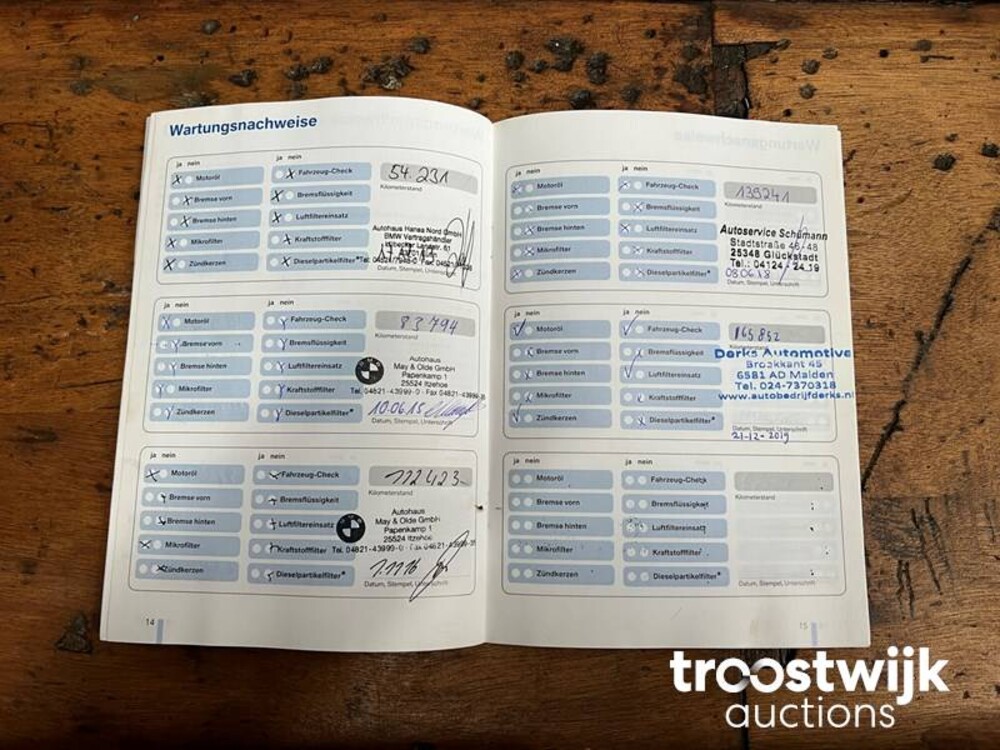 Wartungsnachweise
ja nein
ja nein
Motoröl
Fahrzeug-Check
54.231
Bremse vorn
Bremsflüssigkeit
Kilometerstand
Bremse hinten
Luftfiltereinsatz
Autohaus Hansa Nord GmbH
BMW Vertragshändler
Mikrofilter
Kraftstofffilter
Zündkerzen
Dieselpartikelfilter*
Datum, Stempel, Unterschrift
ja nein
ja nein
Motoröl
Fahrzeug-Check
83794
Bremse vorn
Bremsflüssigkeit
Kilometerstand
Bremse hinten
Luftfiltereinsatz
Autohaus
May & Olde GmbH
Papenkamp 1
25524 Itzehoe
Mikrofilter
Kraftstofffilter
Tel. 04821-43999-0 · Fax 04821-43999-35
Zündkerzen
Dieselpartikelfilter*
10.06.15
Datum, Stempel, Unterschrift
ja nein
ja nein
Motoröl
Fahrzeug-Check
112423
Bremse vorn
Bremsflüssigkeit
Kilometerstand
Bremse hinten
Luftfiltereinsatz
Autohaus
May & Olde GmbH
Papenkamp 1
25524 Itzehoe
Mikrofilter
Kraftstofffilter
Tel. 04821-43999-0 · Fax 04821-43999-35
Zündkerzen
Dieselpartikelfilter*
7.11.16
Datum, Stempel, Unterschrift
14
ja nein
ja nein
Motoröl
Fahrzeug-Check
139241
Bremse vorn
Bremsflüssigkeit
Kilometerstand
Bremse hinten
Luftfiltereinsatz
Autoservice Schümann
Stadtstraße 46/48
25348 Glückstadt
Tel.: 04124 / 24 19
Mikrofilter
Kraftstofffilter
Zündkerzen
Dieselpartikelfilter*
08.06.18
Datum, Stempel, Unterschrift
ja nein
ja nein
Motoröl
Fahrzeug-Check
165852
Bremse vorn
Bremsflüssigkeit
Kilometerstand
Derks Automotive
Broekkant 45
6581 AD Malden
Tel. 024-7370318
www.autobedrijfderks.nl
Bremse hinten
Luftfiltereinsatz
Mikrofilter
Kraftstofffilter
Zündkerzen
Dieselpartikelfilter*
Datum, Stempel, Unterschrift
21-12-2019
ja nein
ja nein
Motoröl
Fahrzeug-Check
Bremse vorn
Bremsflüssigkeit
Kilometerstand
Bremse hinten
Luftfiltereinsatz
Mikrofilter
Kraftstofffilter
Zündkerzen
Dieselpartikelfilter*
Datum, Stempel, Unterschrift
15
troostwijk
auctions